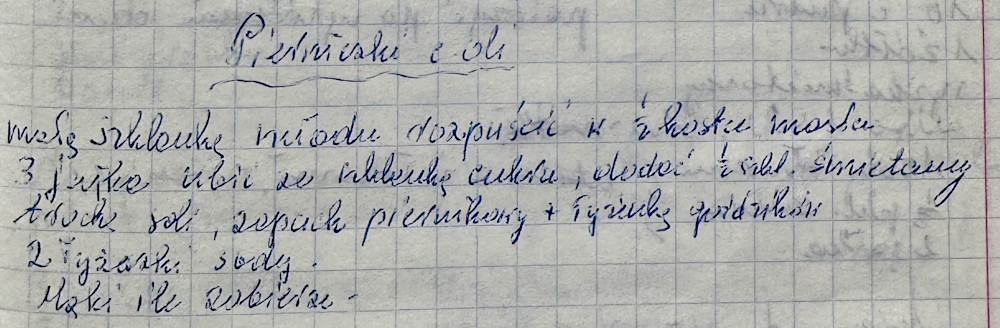 Pierniczki c oli
małą szklankę miodu rozpuścić w ½ kostu masła
3 jajka ubić ze szklanką cukru, dodać ½ szkl. śmietany
trochę soli, zapach piernikowy + łyżeczkę goździków
2 łyżeczki sody.
Mąki ile zabierze.